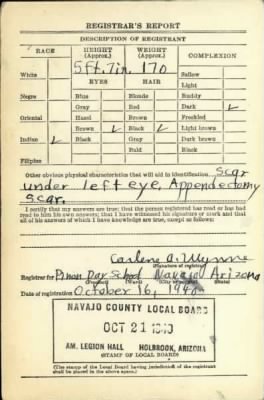 REGISTRAR'S REPORT
DESCRIPTION OF REGISTRANT
RACE HEIGHT (Approx.) WEIGHT (Approx.) COMPLEXION
5 ft. 7 in. 170
White Sallow
EYES HAIR Light
Negro Blue Blonde Ruddy
Gray Red Dark ✓
Oriental Hazel Black Freckled
Brown ✓ Brown Light brown
Indian ✓ Black Gray Dark brown
Bald Black
Filipino
Other obvious physical characteristics that will aid in identification Scar
under left eye, Appendectomy
Scar.
I certify that my answers are true; that the person registered has read or has had
read to him his own answers; that I have witnessed his signature or mark and that
all of his answers of which I have knowledge are true, except as follows:
(Signature of registrar)
Registrar for Day School Navajo Arizona
(Precinct) (Ward) (City or county) (State)
Date of registration October 16, 1940
NAVAJO COUNTY LOCAL BOARD
OCT 21 1940
AM. LEGION HALL HOLBROOK, ARIZONA
(STAMP OF LOCAL BOARD)
(The stamp of the Local Board having jurisdiction of the registrant
shall be placed in the above space.)